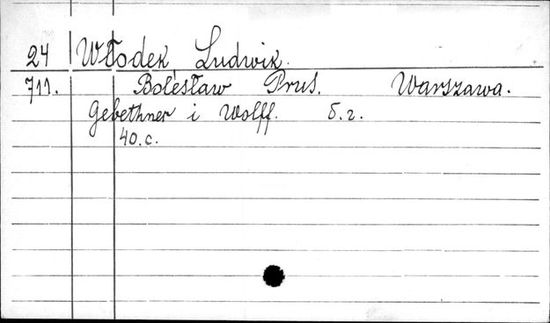 24 Włodek Ludwik.
711. Bolesław Prus. Warszawa.
Gebethner i Wolff. б. г.
40. с.